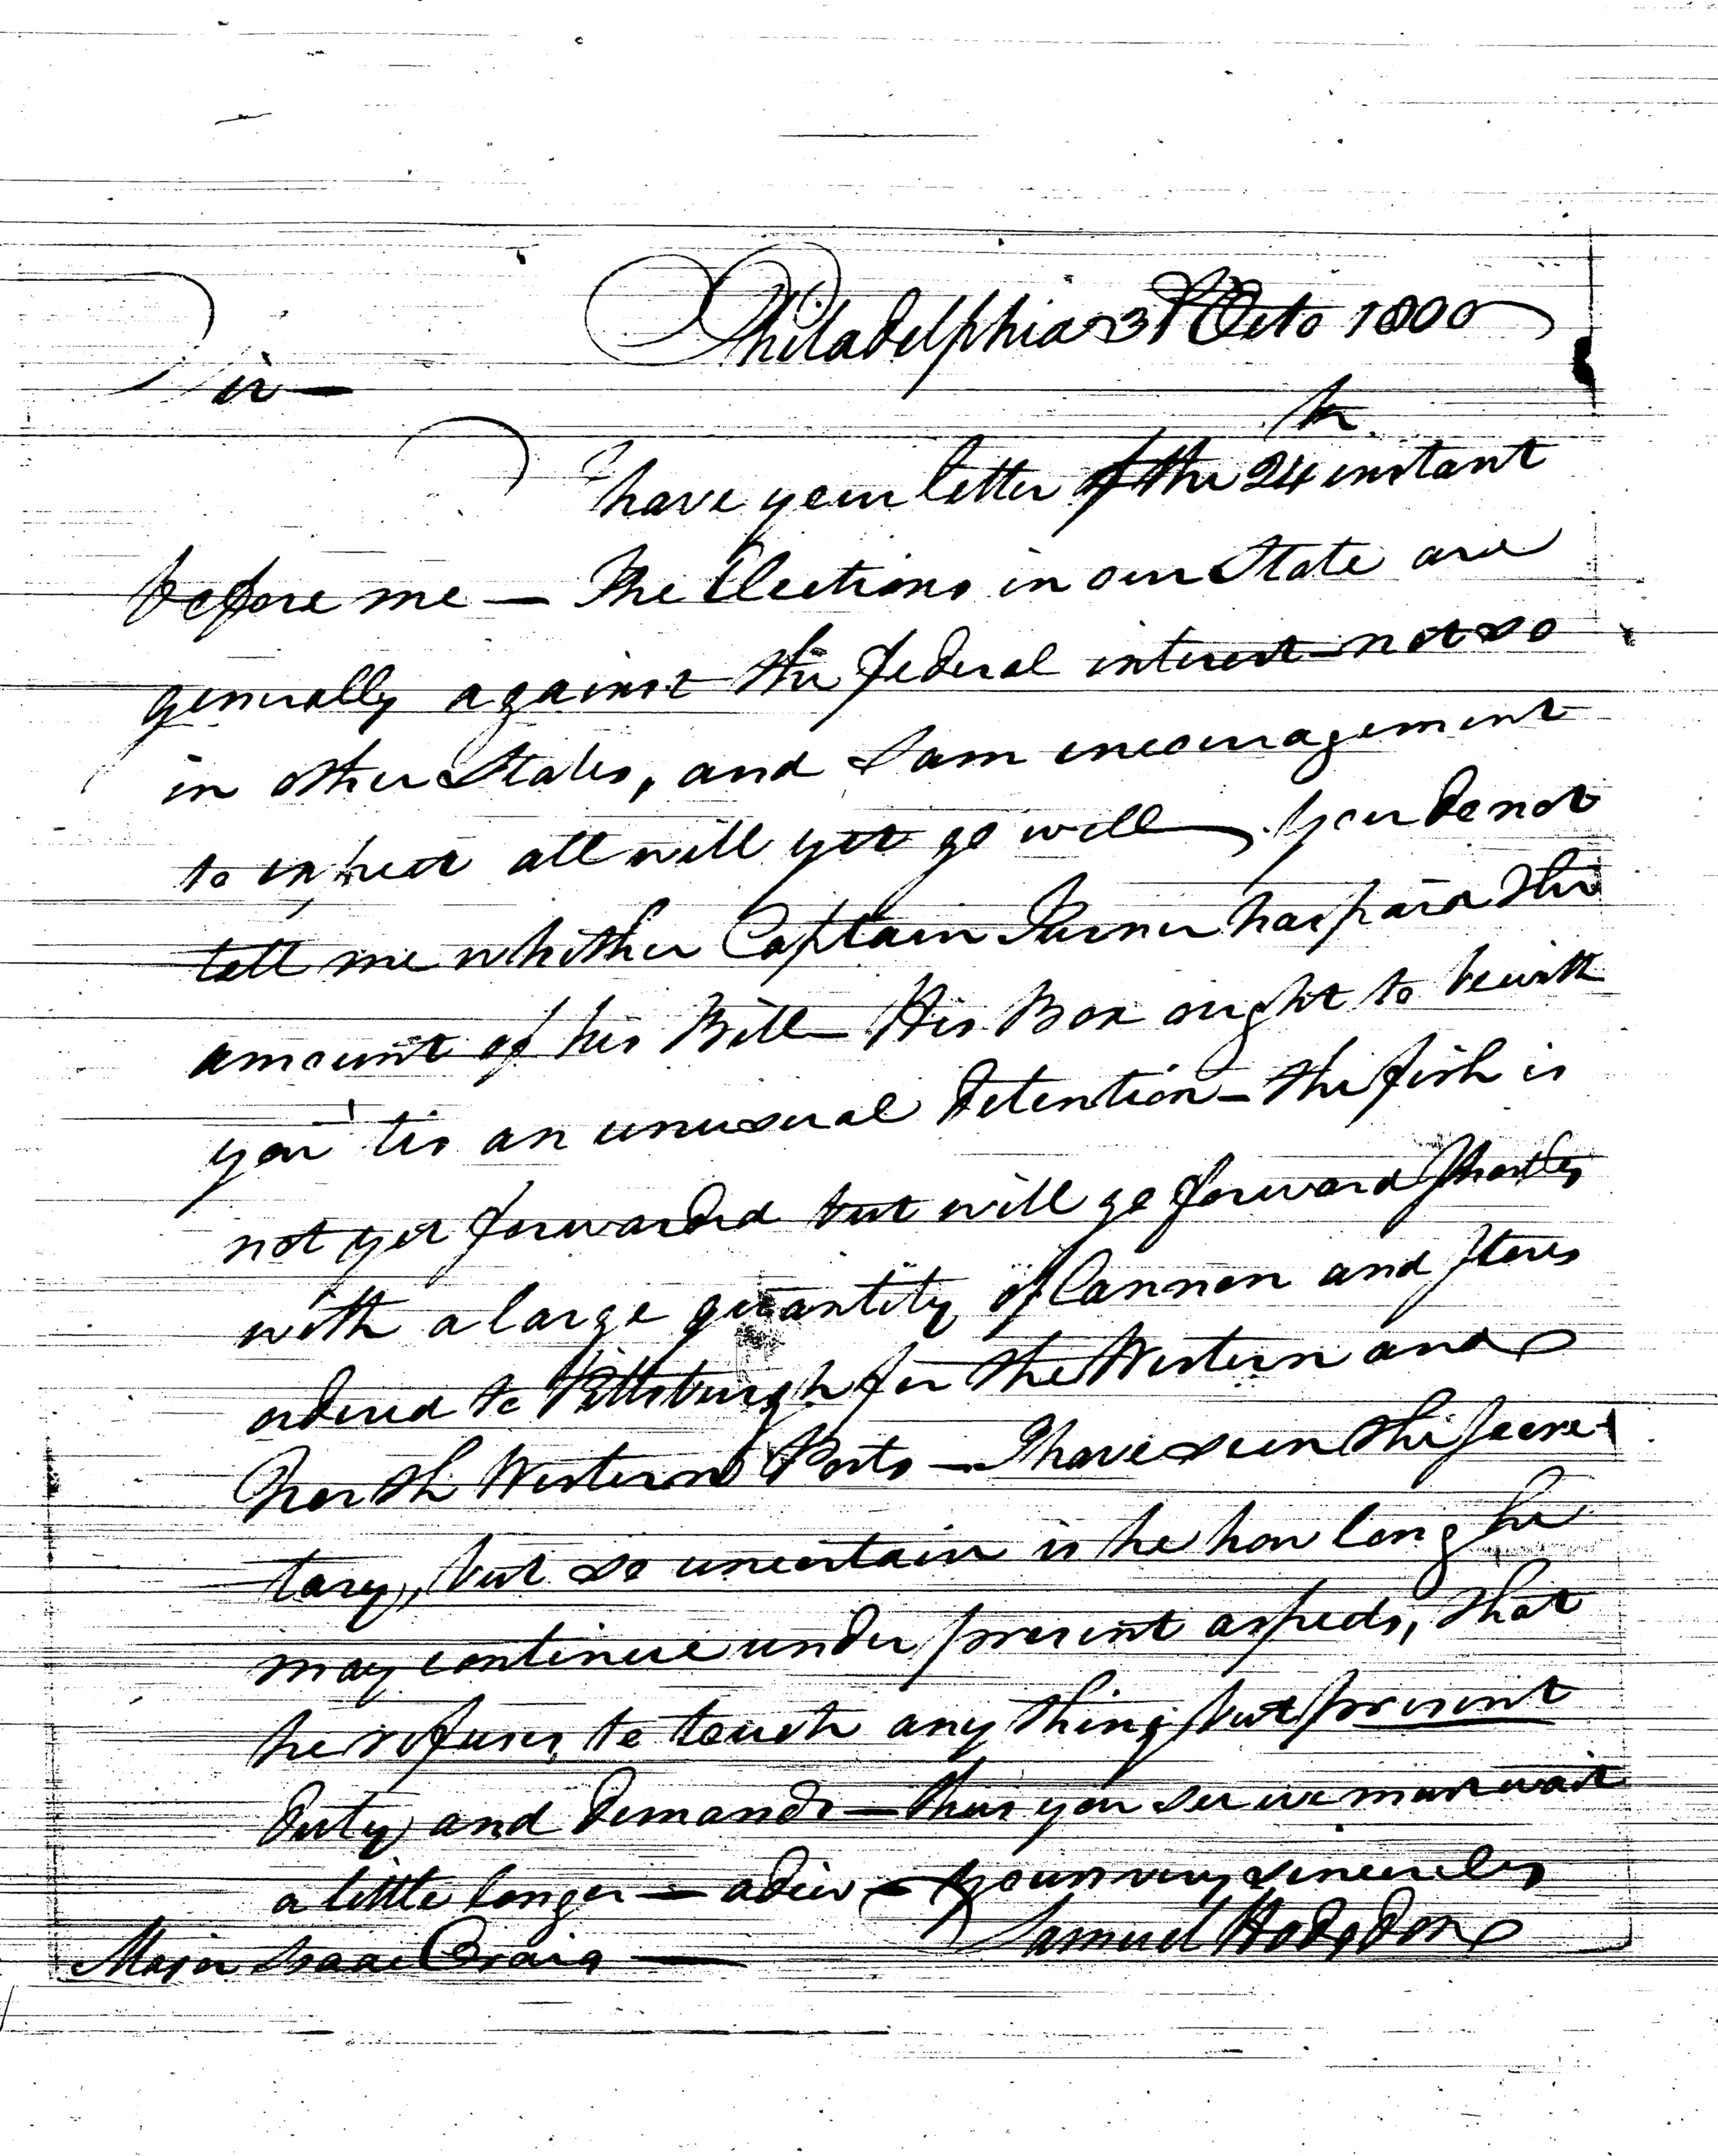 Philadelphia 31 Octo 1800
Sir —
I have your letter of the 24th instant
before me — The Elections in our State are
generally against the federal interest - not so
in other States, and I am encouragement
to expect all will yet go well — you do not
tell me whither Captain Turner has paid the
amount of his Bill — His Box ought to be with
you 'tis an unusual detention — the fish is
not yet forwarded but will go forward shortly
with a large quantity of Cannon and Stores
ordered to Pittsburgh for the Western and
North Western Posts — I have seen the Secre-
tary, but so uncertain is he how long he
may continue under present aspects, that
he refuses to touch any thing but present
duty and demands — thus you see we must wait
a little longer — adieu — yours very sincerely
Samuel Hodgdon
Major Isaac Craig —